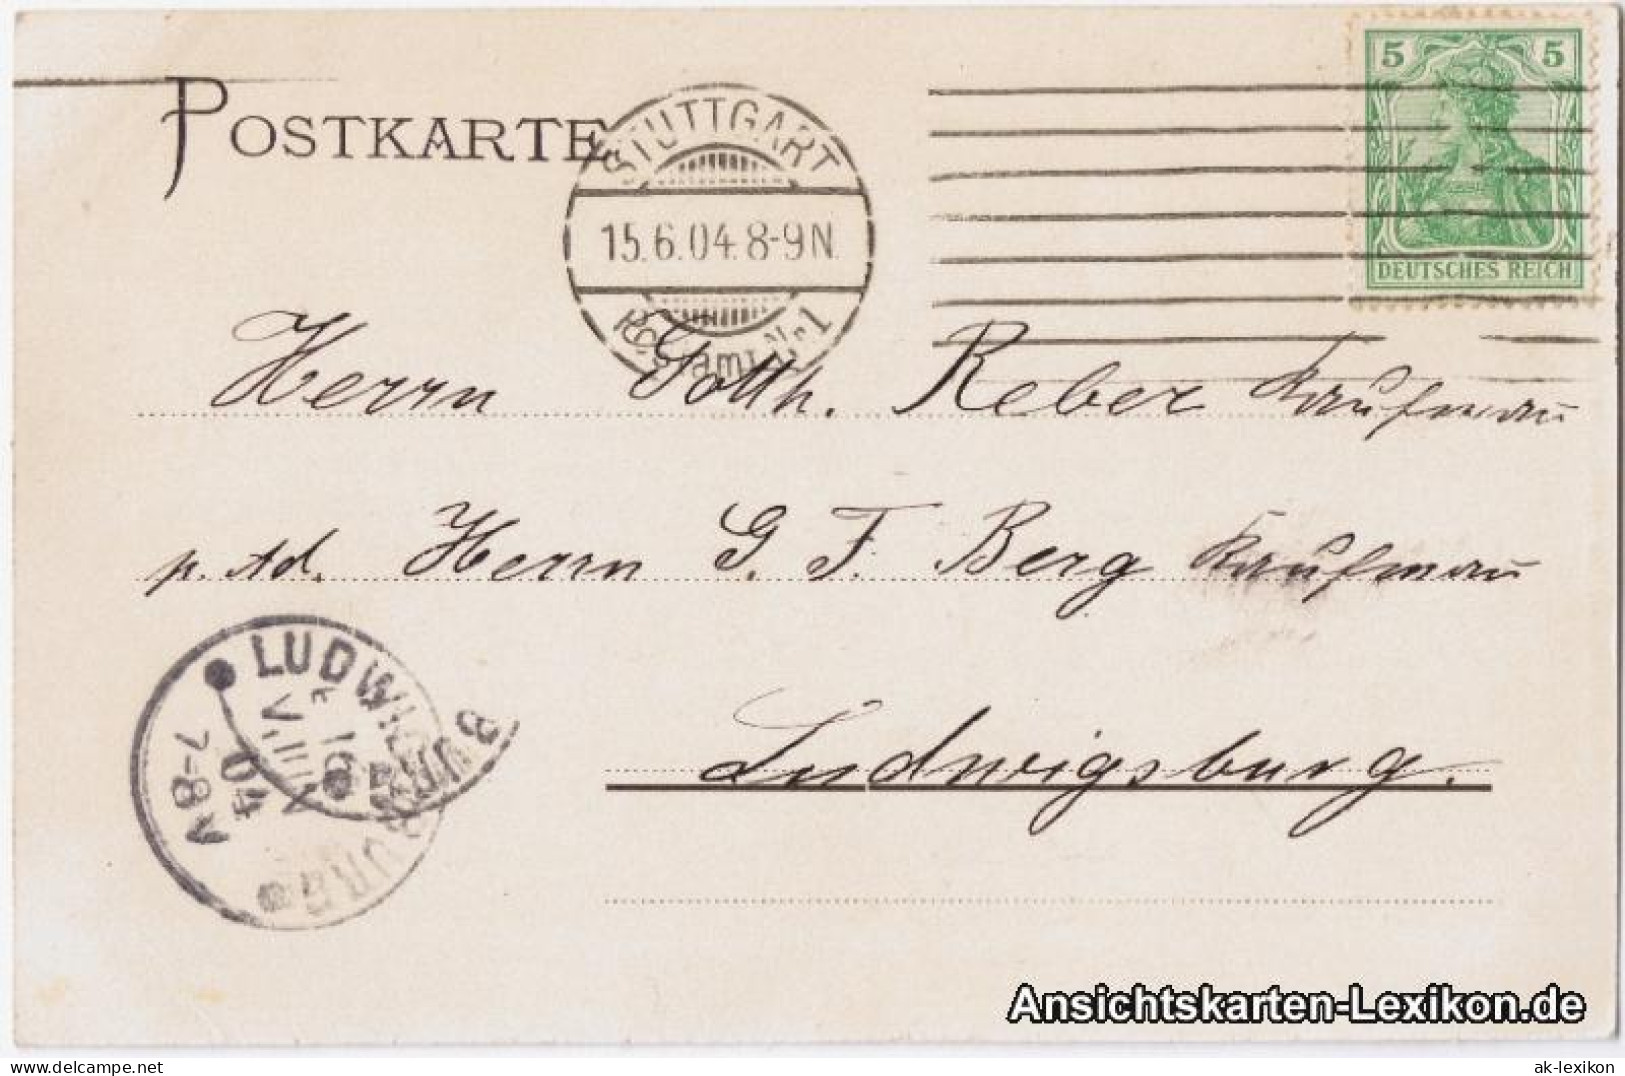 5 5
DEUTSCHES REICH
POSTKARTE
STUTTGART
15.6.04.8-9N.
Postamt Nr 1
Herrn Gotth. Reber Kaufmann
p. Ad. Herrn G. F. Berg Kaufmann
Ludwigsburg.
LUDWIGSBURG
04
7-8V
Ansichtskarten-Lexikon.de
ak-lexikon